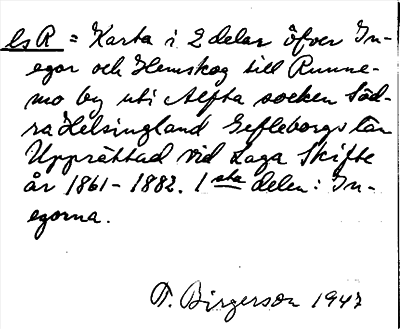 ls R = Karta i 2 delar öfver In-
egor och Hemskog till Runne-
mo by uti Alfta socken Söd-
ra Helsingland Gefleborgs län
Upprättad vid Laga Skifte
år 1861-1882. 1sta delen: In-
egorna.
T. Birgerson 1947